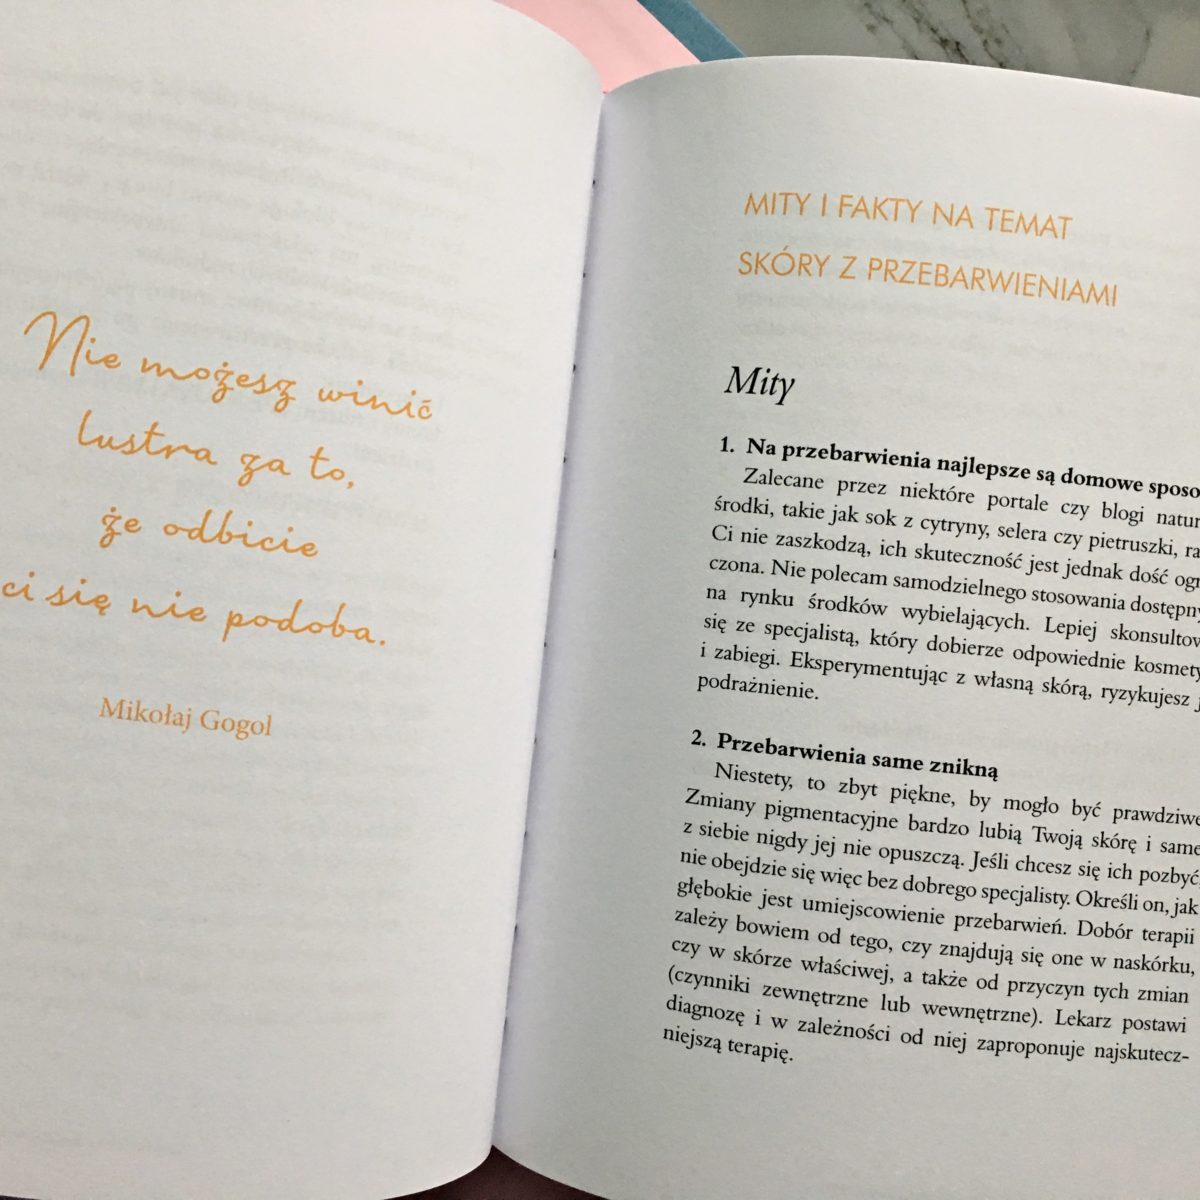 Nie możesz winić
lustra za to,
że odbicie
ci się nie podoba.
Mikołaj Gogol
MITY I FAKTY NA TEMAT
SKÓRY Z PRZEBARWIENIAMI
Mity
1. Na przebarwienia najlepsze są domowe sposo
Zalecane przez niektóre portale czy blogi natur
środki, takie jak sok z cytryny, selera czy pietruszki, ra
Ci nie zaszkodzą, ich skuteczność jest jednak dość ogr
czona. Nie polecam samodzielnego stosowania dostępny
na rynku środków wybielających. Lepiej skonsultow
się ze specjalistą, który dobierze odpowiednie kosmety
i zabiegi. Eksperymentując z własną skórą, ryzykujesz j
podrażnienie.
2. Przebarwienia same znikną
Niestety, to zbyt piękne, by mogło być prawdziwe
Zmiany pigmentacyjne bardzo lubią Twoją skórę i same
z siebie nigdy jej nie opuszczą. Jeśli chcesz się ich pozbyć,
nie obejdzie się więc bez dobrego specjalisty. Określi on, jak
głębokie jest umiejscowienie przebarwień. Dobór terapii
zależy bowiem od tego, czy znajdują się one w naskórku,
czy w skórze właściwej, a także od przyczyn tych zmian
(czynniki zewnętrzne lub wewnętrzne). Lekarz postawi
diagnozę i w zależności od niej zaproponuje najskutecz-
niejszą terapię.